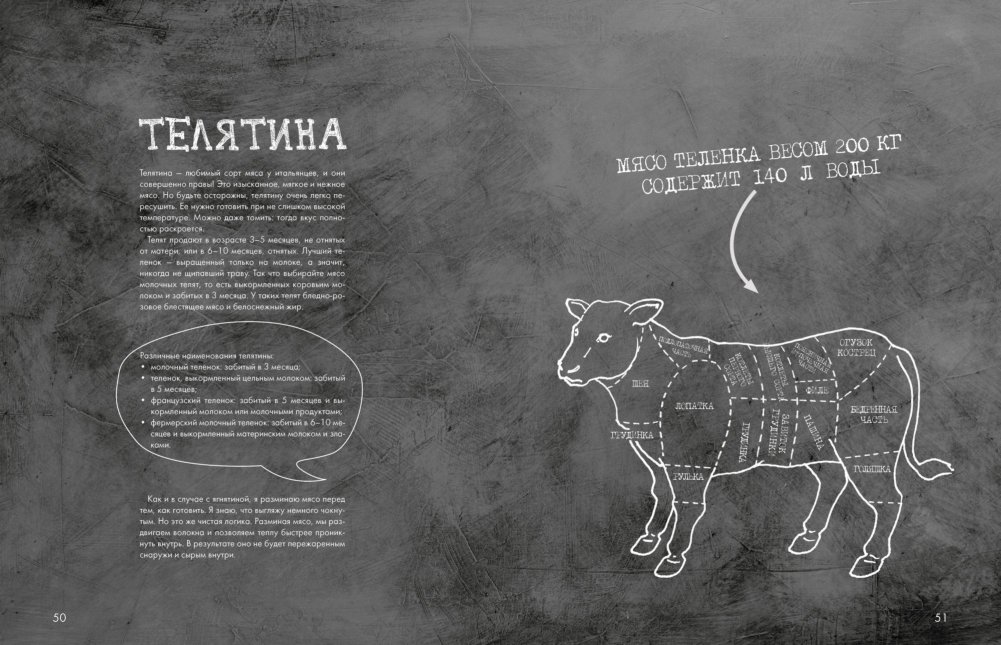 ТЕЛЯТИНА
Телятина — любимый сорт мяса у итальянцев, и они
совершенно правы! Это изысканное, мягкое и нежное
мясо. Но будьте осторожны, телятину очень легко пе-
ресушить. Ее нужно готовить при не слишком высокой
температуре. Можно даже томить: тогда вкус полно-
стью раскроется.
Телят продают в возрасте 3–5 месяцев, не отнятых
от матери, или в 6–10 месяцев, отнятых. Лучший те-
ленок — выращенный только на молоке, а значит,
никогда не щипавший траву. Так что выбирайте мясо
молочных телят, то есть выкормленных коровьим мо-
локом и забитых в 3 месяца. У таких телят бледно-ро-
зовое блестящее мясо и белоснежный жир.
Различные наименования телятины:
• молочный теленок: забитый в 3 месяца;
• теленок, выкормленный цельным молоком: забитый
в 5 месяцев;
• французский теленок: забитый в 5 месяцев и вы-
кормленный молоком или молочными продуктами;
• фермерский молочный теленок: забитый в 6–10 ме-
сяцев и выкормленный материнским молоком и зла-
ками.
Как и в случае с ягнятиной, я разминаю мясо перед
тем, как готовить. Я знаю, что выгляжу немного чокну-
тым. Но это же чистая логика. Разминая мясо, мы раз-
двигаем волокна и позволяем теплу быстрее проник-
нуть внутрь. В результате оно не будет пережаренным
снаружи и сырым внутри.
50
МЯСО ТЕЛЕНКА ВЕСОМ 200 КГ
СОДЕРЖИТ 140 Л ВОДЫ
ШЕЯ
ПОДЛОПАТОЧНАЯ
ЧАСТЬ
КОТЛЕТЫ
ПЕРВОГО
СОРТА
КОТЛЕТЫ
СОРТА
ЧАСТЬ
ОГУЗОК
КОСТРЕЦ
ФИЛЕ
ЛОПАТКА
ГРУДИНКА
ГРУДИНКА
ЗАВИТОК
ГРУДИНКИ
ПАШИНА
БЕДРЕННАЯ
ЧАСТЬ
РУЛЬКА
ГОЛЯШКА
51